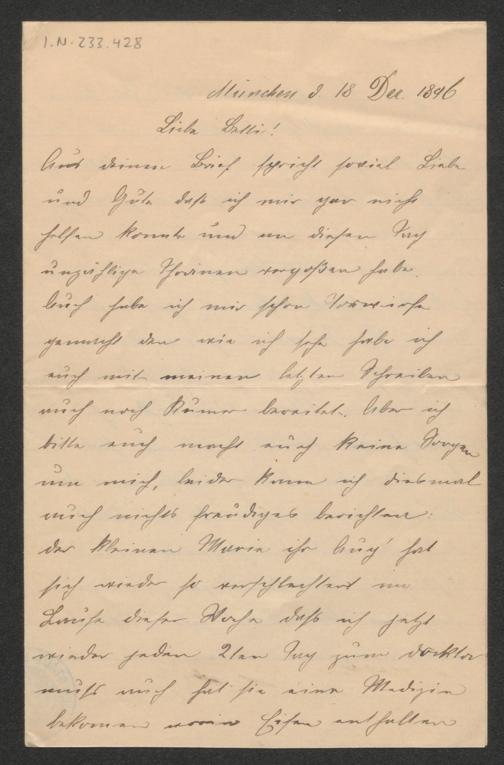 I.N. 233.428
München d. 18 Dec. 1896
Liebe Betti!
Aus deinen Brief spricht soviel Liebe
und Güte daß ich mir gar nicht
helfen konnte und an diesen Tag
unzählige Thränen vergoßen habe.
Auch habe ich mir schon Vorwürfe
gemacht den wie ich sehe habe ich
euch mit meinen letzten Schreiben
auch noch Kumer bereitet. Aber ich
bitte euch macht euch keine Sorgen
um mich, leider kann ich diesmal
auch nichts freudiges berichten:
der kleinen Marie ihr Aug' hat
sich wieder so verschlechtert im
Laufe dieser Woche daß ich jetzt
wieder jeden 2ten Tag zum Docktor
muß auch hat sie eine Medizin
bekomen worin Eisen enthalten